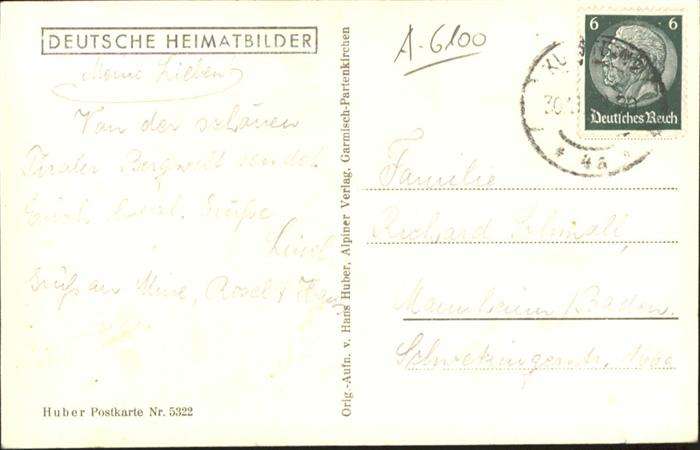 DEUTSCHE HEIMATBILDER
Meine Lieben!
Von der schönen
Tiroler Bergwelt sendet
Euch Grüße
Liesl
Gruß an Rosel &
Huber Postkarte Nr. 5322
Orig.-Aufn. v. Hans Huber, Alpiner Verlag, Garmisch-Partenkirchen
A-6100
6 6
Deutsches Reich
KU
30.
* 4a *
Familie
Richard Schmall,
Mannheim Baden.
Schwetzingerstr.